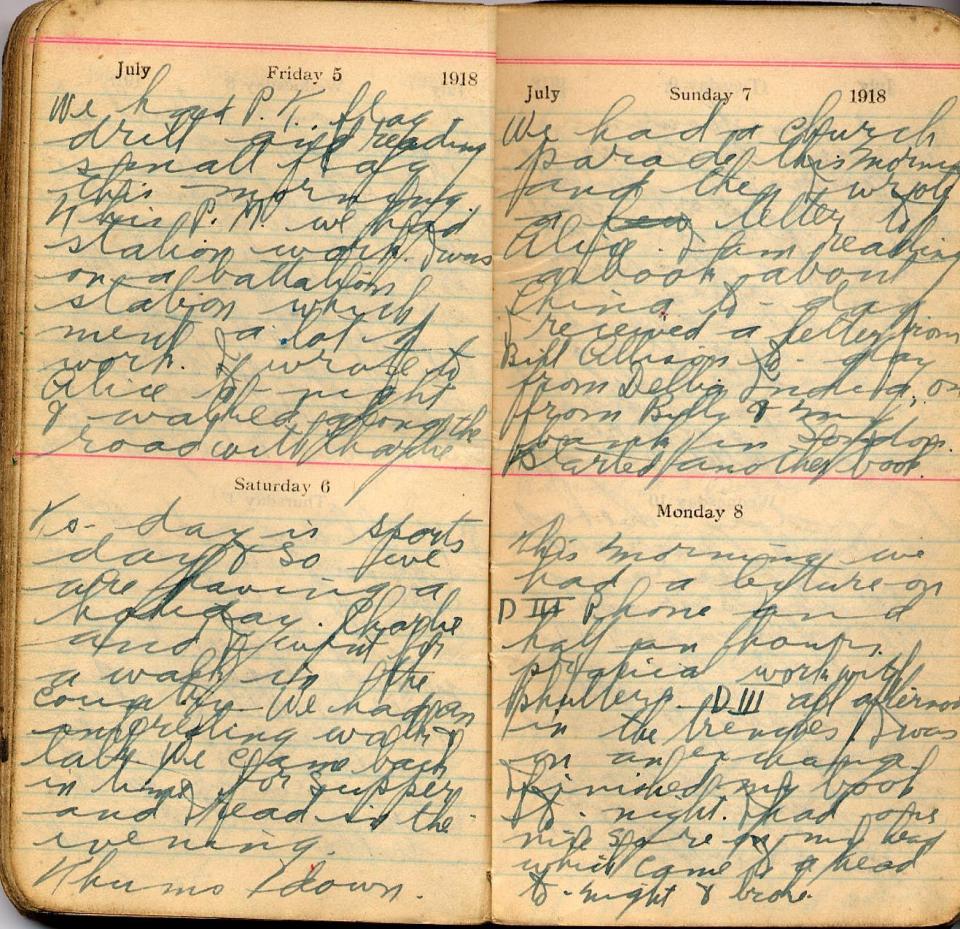 July Friday 5 1918
We had P.T. flag
drill and reading
small flag
this morning.
This P.M. we had
station work. I was
on a battalion
station which
ment a lot of
work. I wrote to
Alice to-night
& walked along the
road with Charlie
Saturday 6
To-day is sports
day & so we
are having a
holiday. Charlie
and I went for
a walk in the
country. We had an
walk &
talk. We came back
in time for supper
and I read in the
evening.
Thums down.
July Sunday 7 1918
We had a church
parade this morning
and then I wrote
a letter to
Alice. I am reading
a book about
China to-day
received a letter from
Bill Allison to-day
from Delhi India, on
from Billy & my
bank in London.
Started another book.
Monday 8
This morning we
had a lecture on
D III Phone and
half an hours
work with
D III all afternoon
in the trenches I was
on an exchange.
Finished my book
to-night. I had a
sore on my head
which came to a head
to-night & broke.